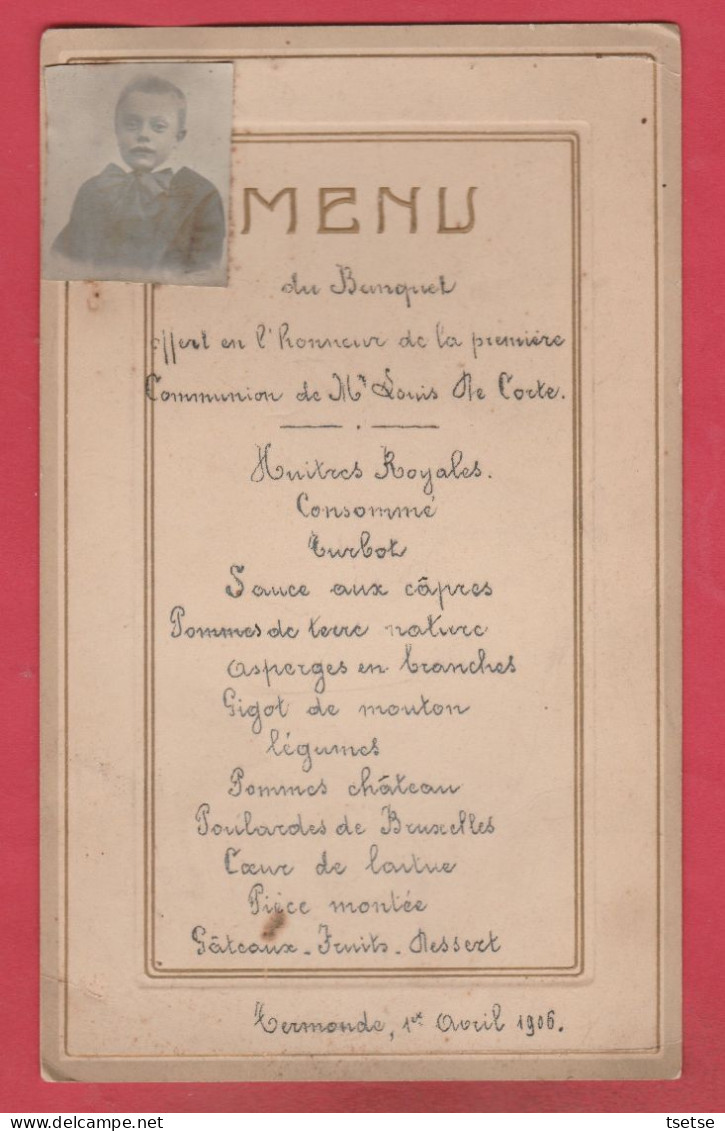 MENU
du Banquet
offert en l'honneur de la première
Communion de Mr Louis De Corte.
Huitres Royales.
Consommé
Turbot
Sauce aux câpres
Pommes de terre nature
Asperges en branches
Gigot de mouton
légumes
Pommes château
Poulardes de Bruxelles
Cœur de laitue
Pièce montée
Gâteaux - Fruits - Dessert
Termonde, 1er Avril 1906.
tsetse